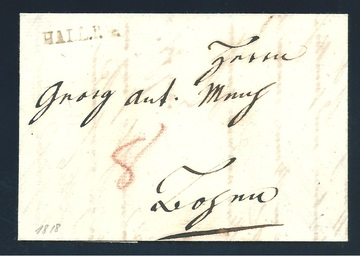 HALL.
Herrn
Georg Ant. Menz
8
Bozen
1818